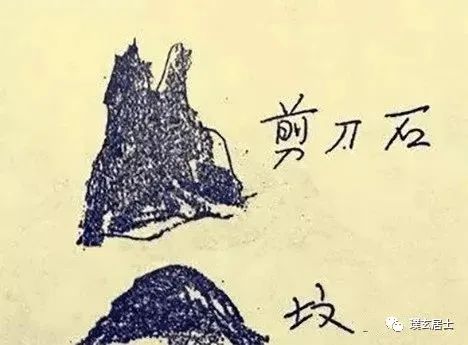 剪刀石
坟
璞玄居士